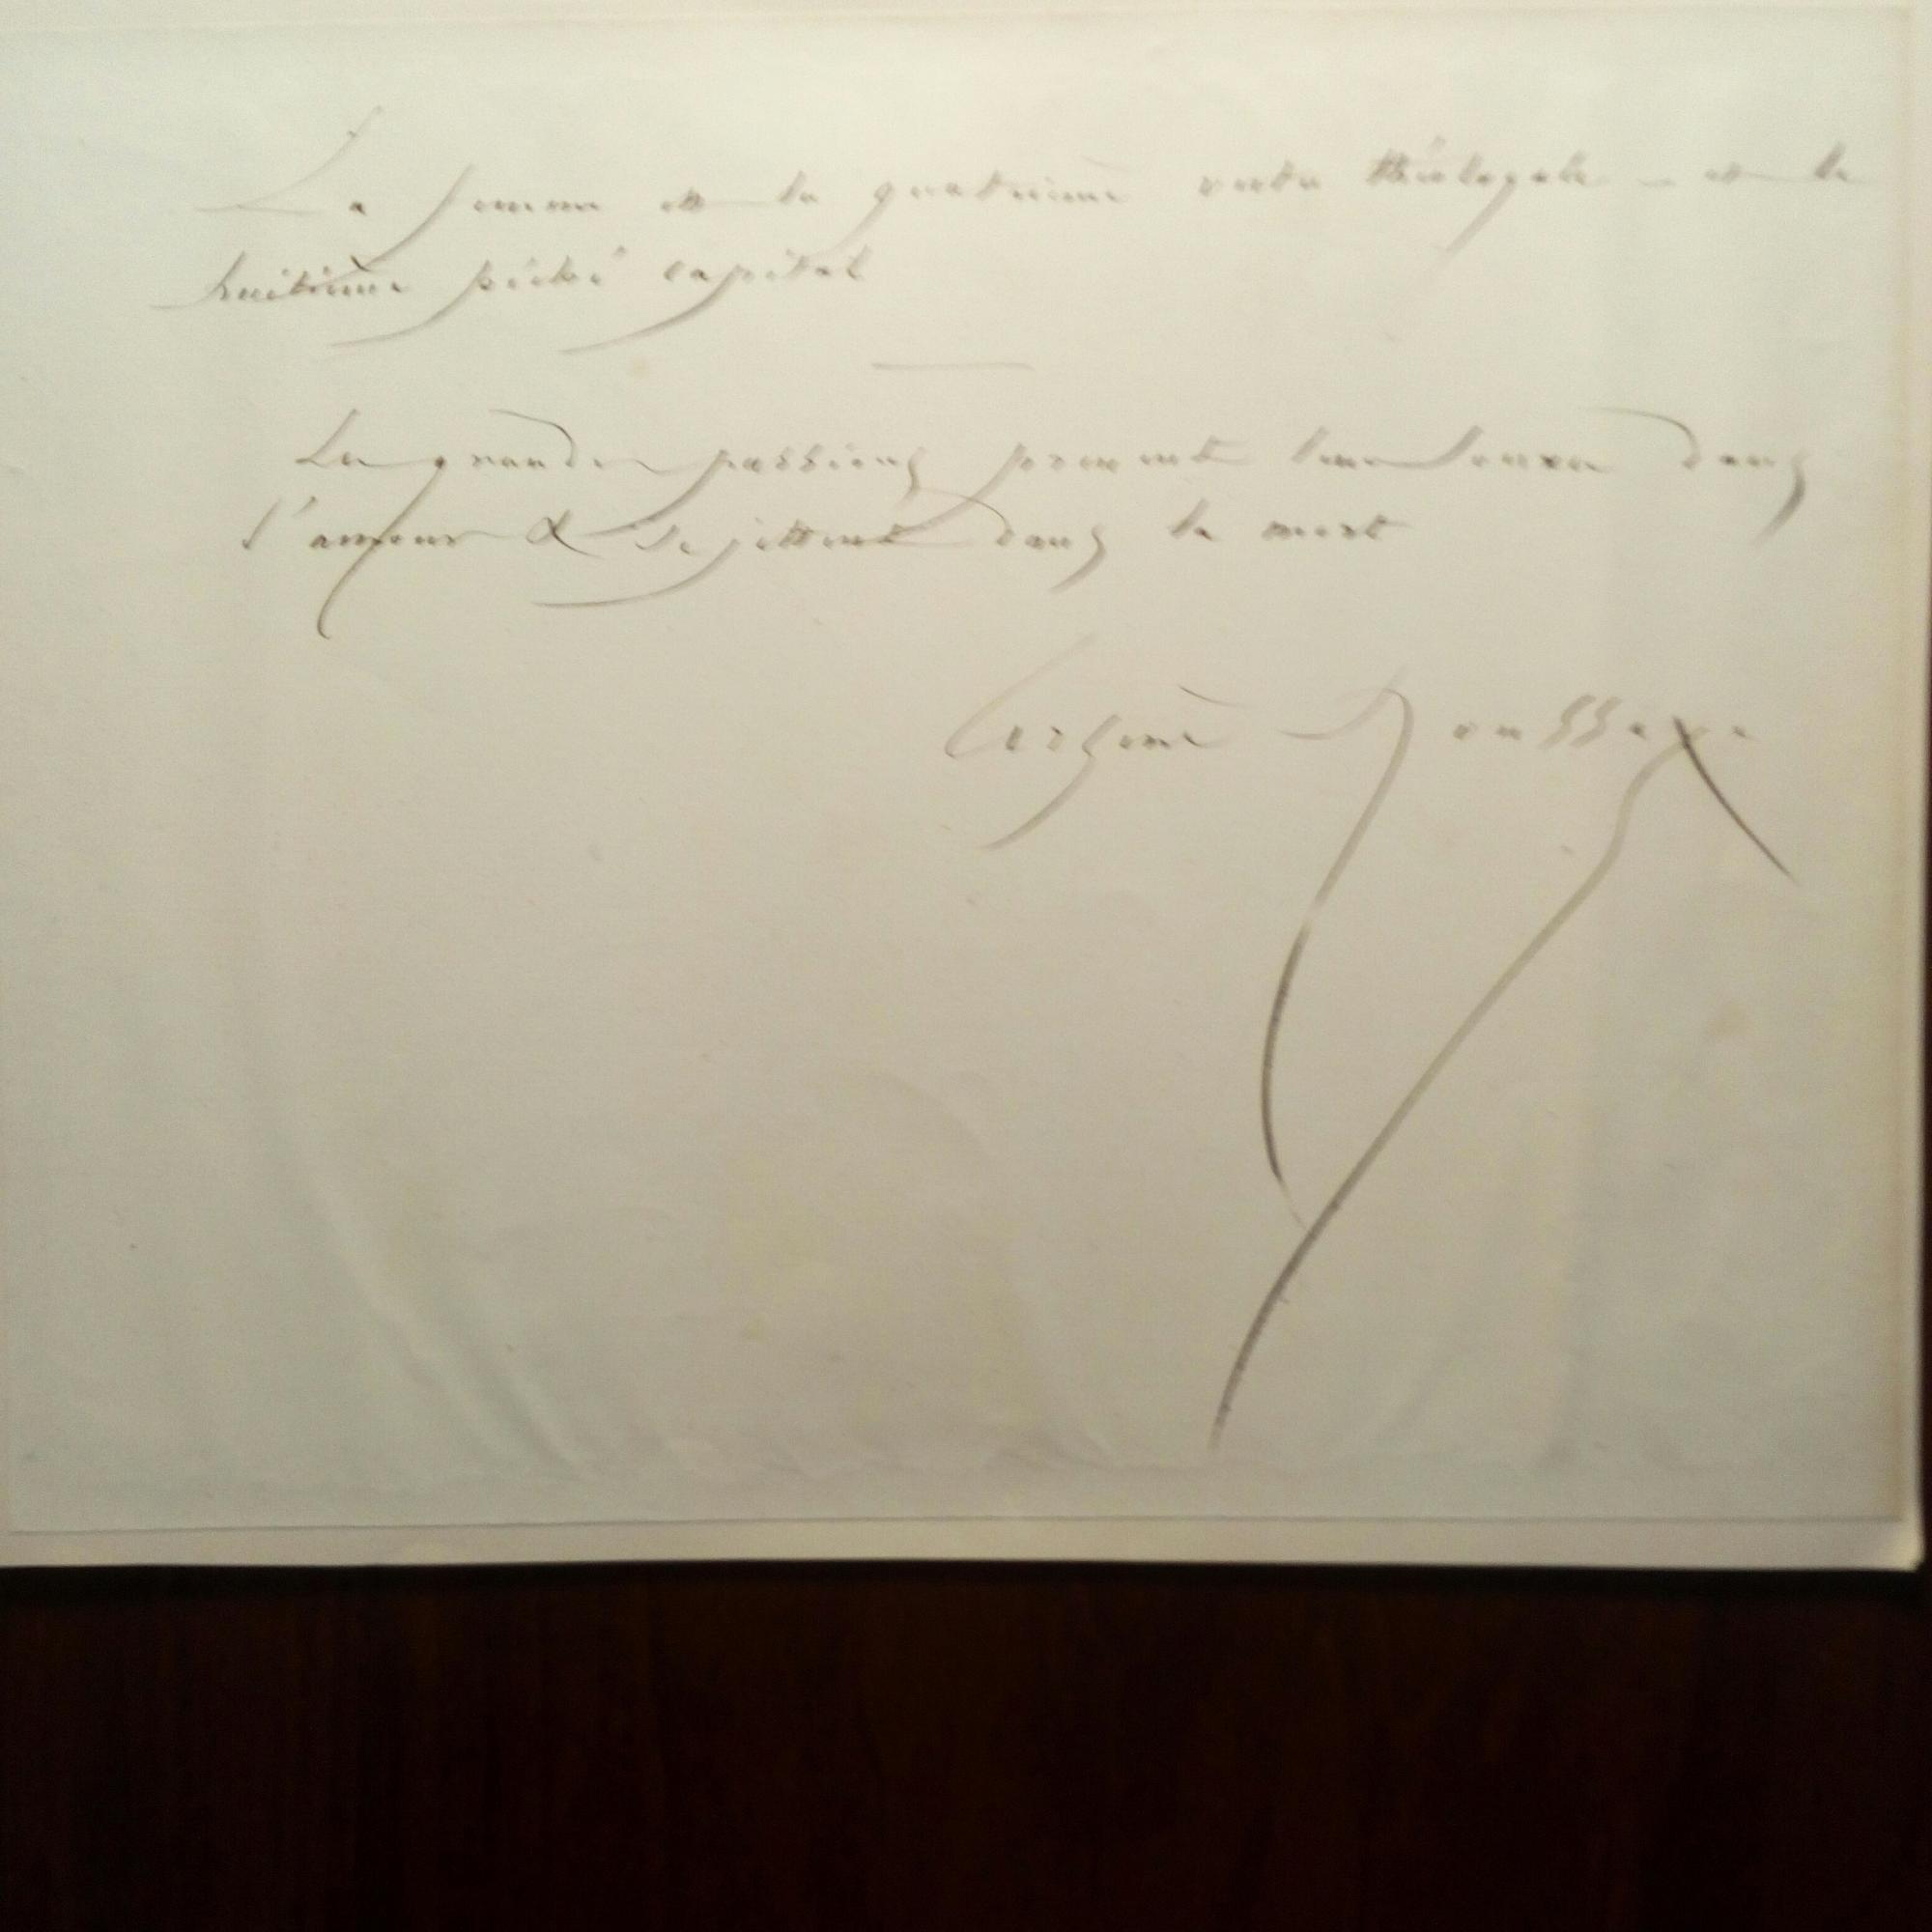 La femme est la quatrième vertu théologale — et le
huitième péché capital
Les grandes passions prennent leur source dans
l'amour & se jettent dans la mort
Arsène Houssaye